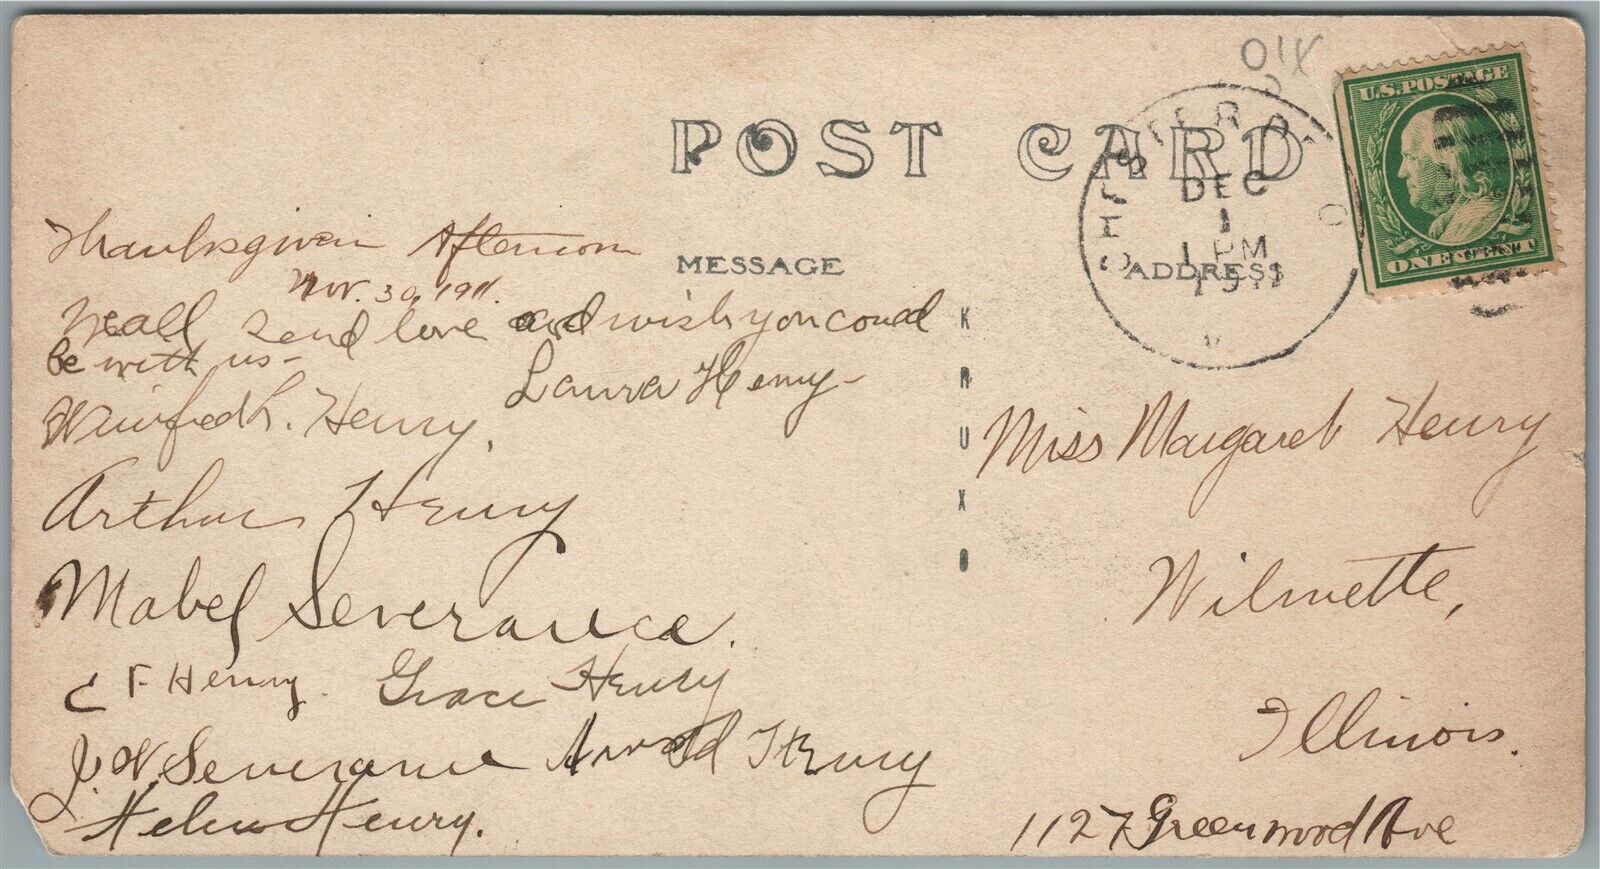 POST CARD
MESSAGE
ADDRESS
Thanksgivin Afternoon
Nov. 30, 1911.
We all send love and wish you could
be with us-
Laura Henry-
Winifred L. Henry.
Arthur Henry
Mabel Severance.
C F Henry. Grace Henry
J. W. Severance Arnold Henry
Helen Henry.
KRUXO
DEC
1
1 PM
1911
U.S. POSTAGE
ONE CENT
Miss Margaret Henry
Wilmette,
Illinois.
1127 Greenwood Ave